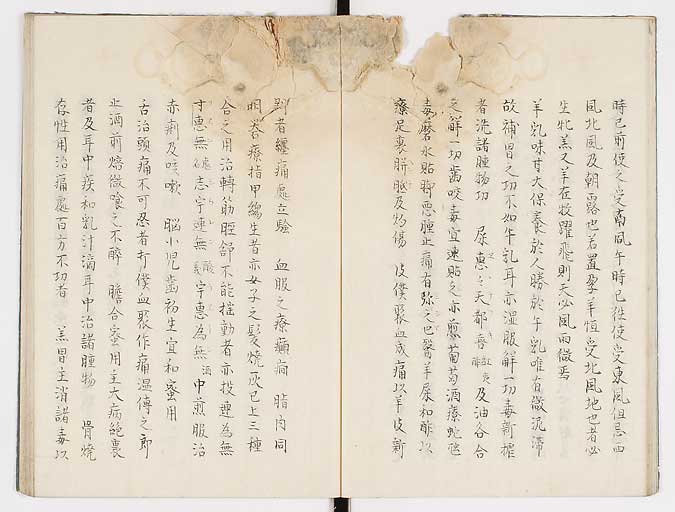 時已前使之受南風午時已後使受東風但忌西
風北風及朝露也若置孕羊恒受北風地也者必
生牝羔又羊在牧躍飛則天必風雨徵焉
羊乳味甘大保養於人勝於牛乳唯有微泥滯
故補胃之功不如牛乳耳亦温服解一切毒新搾
者洗諸腫物切　尿惠天都喜　及油各合
之解一切歯咬毒宜速貼之亦煎葡萄酒療蛇
毒磨水貼腫悪腫止痛有弥之已醫羊尿和酢以
療足裏胼胝及灼傷　皮僕聚血成痛以羊皮新
剥者纏痛處立驗　血服之療癲癇　脂肉同
明春療指甲編生者亦女子之髪焼灰已上三種
合之用治轉筋胵節不能揺動者亦投連為無
寸惠無　志宇連無　宇惠為無　中煎服治
赤痢及咳嗽　脳小児歯初生宜和蜜用
古治頭痛不可忍者打僕血聚作痛温傅之即
止酒前焙微喰之不醉　膽合蜜用主大病絶裏
者及耳中疾和乳汁滴耳中治諸腫物　骨焼
存性用治痛處百方不功者　羔胃主消諸毒以